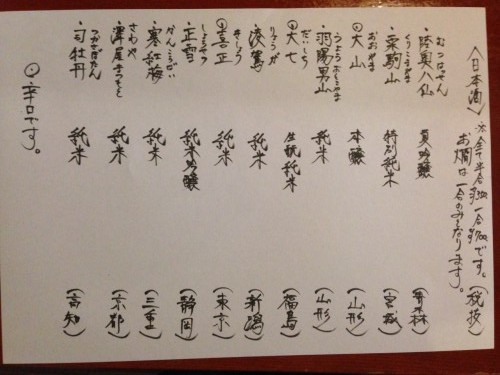 〈日本酒〉 ・全て半合¥350 一合¥700です。(税抜)
お燗は一合のみとなります。
むつはっせん
・陸奥八仙 夏吟醸 (青森)
くりこまやま
・栗駒山 特別純米 (宮城)
おおやま
⊙大山 本醸 (山形)
うようおとこやま
・羽陽男山 純米 (山形)
だいしち
⊙大七 生酛純米 (福島)
りょうが
・凌駕 純米 (新潟)
きしょう
⊙喜正 純米 (東京)
しょうせつ
・正雪 純米吟醸 (静岡)
かんこうばい
・寒紅梅 純米 (三重)
さわや
・澤屋まつもと 純米 (京都)
つかさぼたん
・司牡丹 純米 (高知)
⊙辛口です。